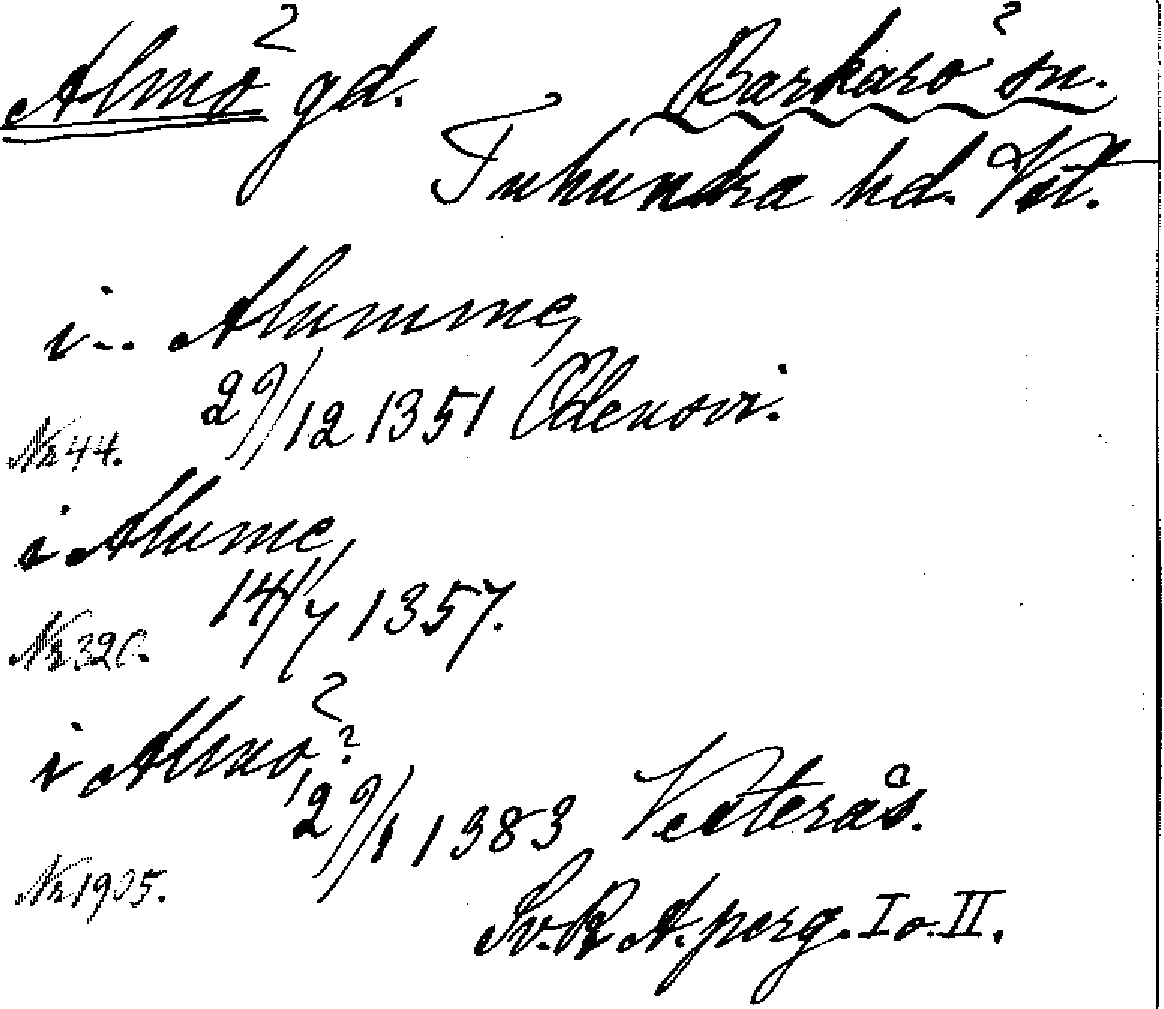 Almö gd. Barkarö sn.
Tuhundra hd. Vst.
i Alumme,
29/12 1351 Odensvi.
Nr 44.
i Alume,
14/7 1357.
Nr 320.
i Almö?
29/1 1383 Vesterås.
Nr 1905.
Sv. R A. perg. I o. II.